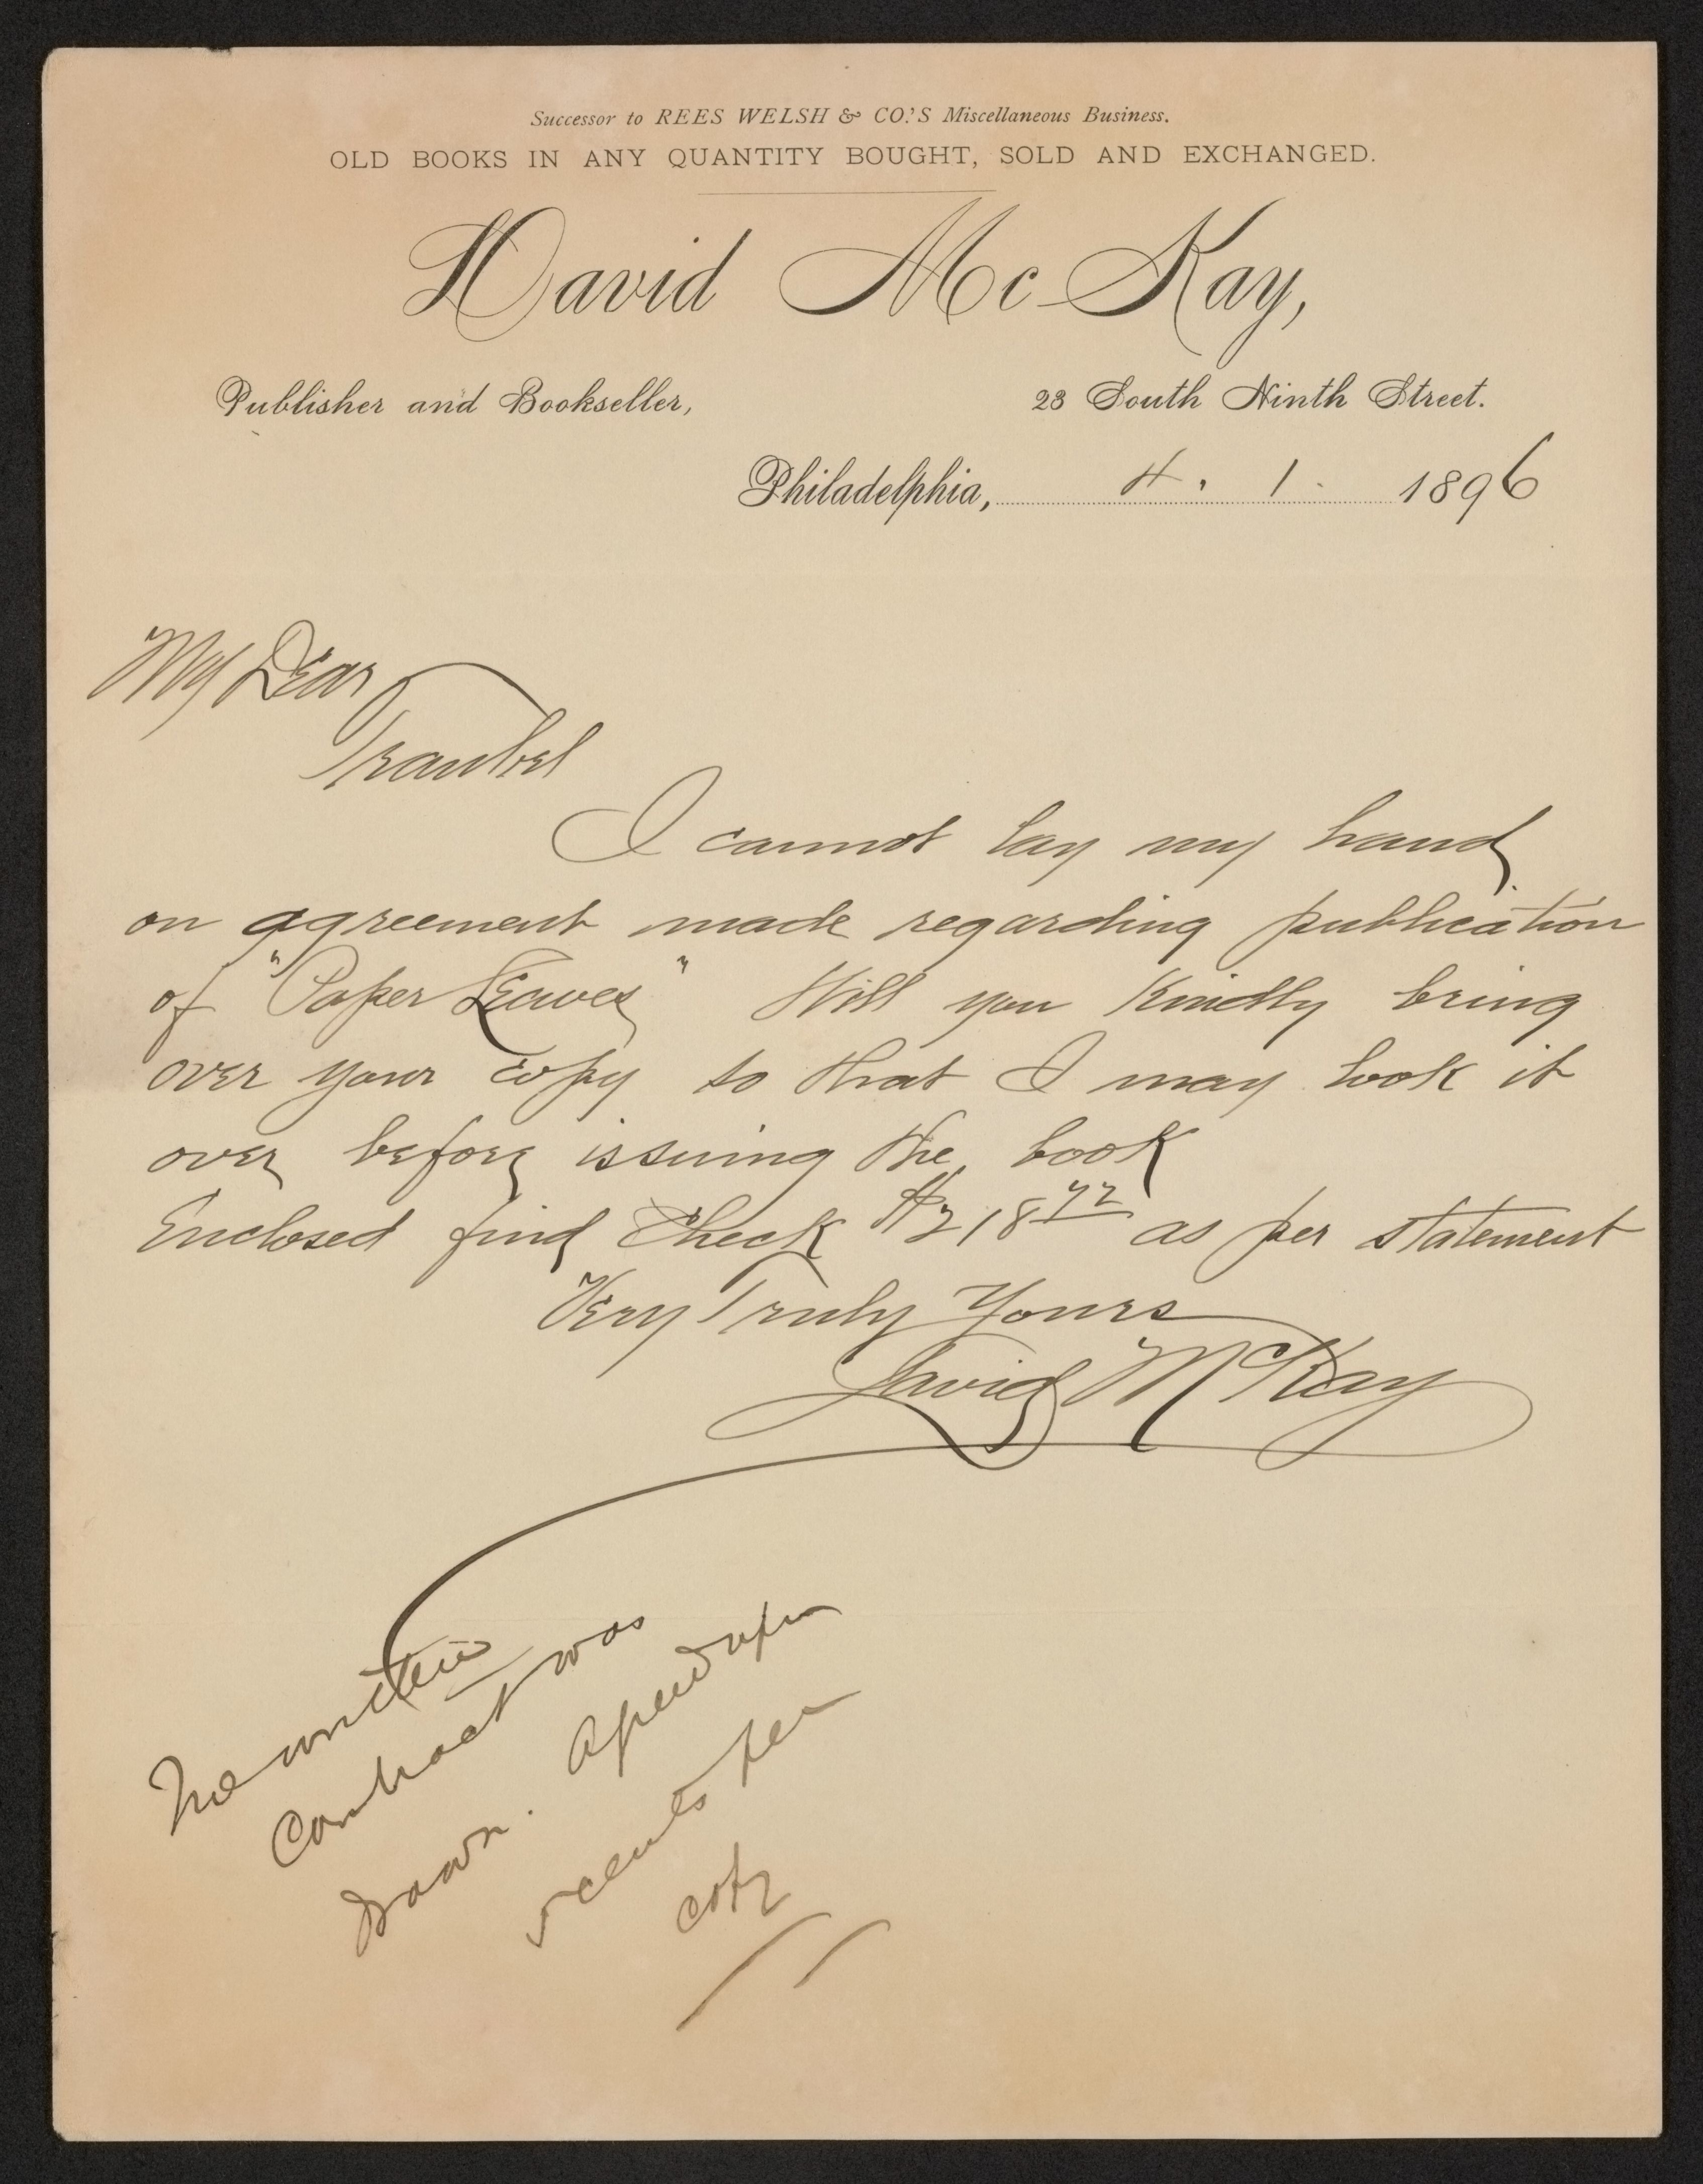 Successor to REES WELSH & CO.'S Miscellaneous Business.
OLD BOOKS IN ANY QUANTITY BOUGHT, SOLD AND EXCHANGED.
David McKay,
Publisher and Bookseller, 23 South Ninth Street.
Philadelphia, 4. 1. 1896
My Dear
Traubel
I cannot lay my hand
on agreement made regarding publication
of "Paper Leaves" Will you Kindly bring
over your copy so that I may look it
over before issuing the book
Enclosed find Check $218 as per statement
Very Truly Yours
David McKay
No written
Contract was
Drawn. Agreed upon
cents per
copy